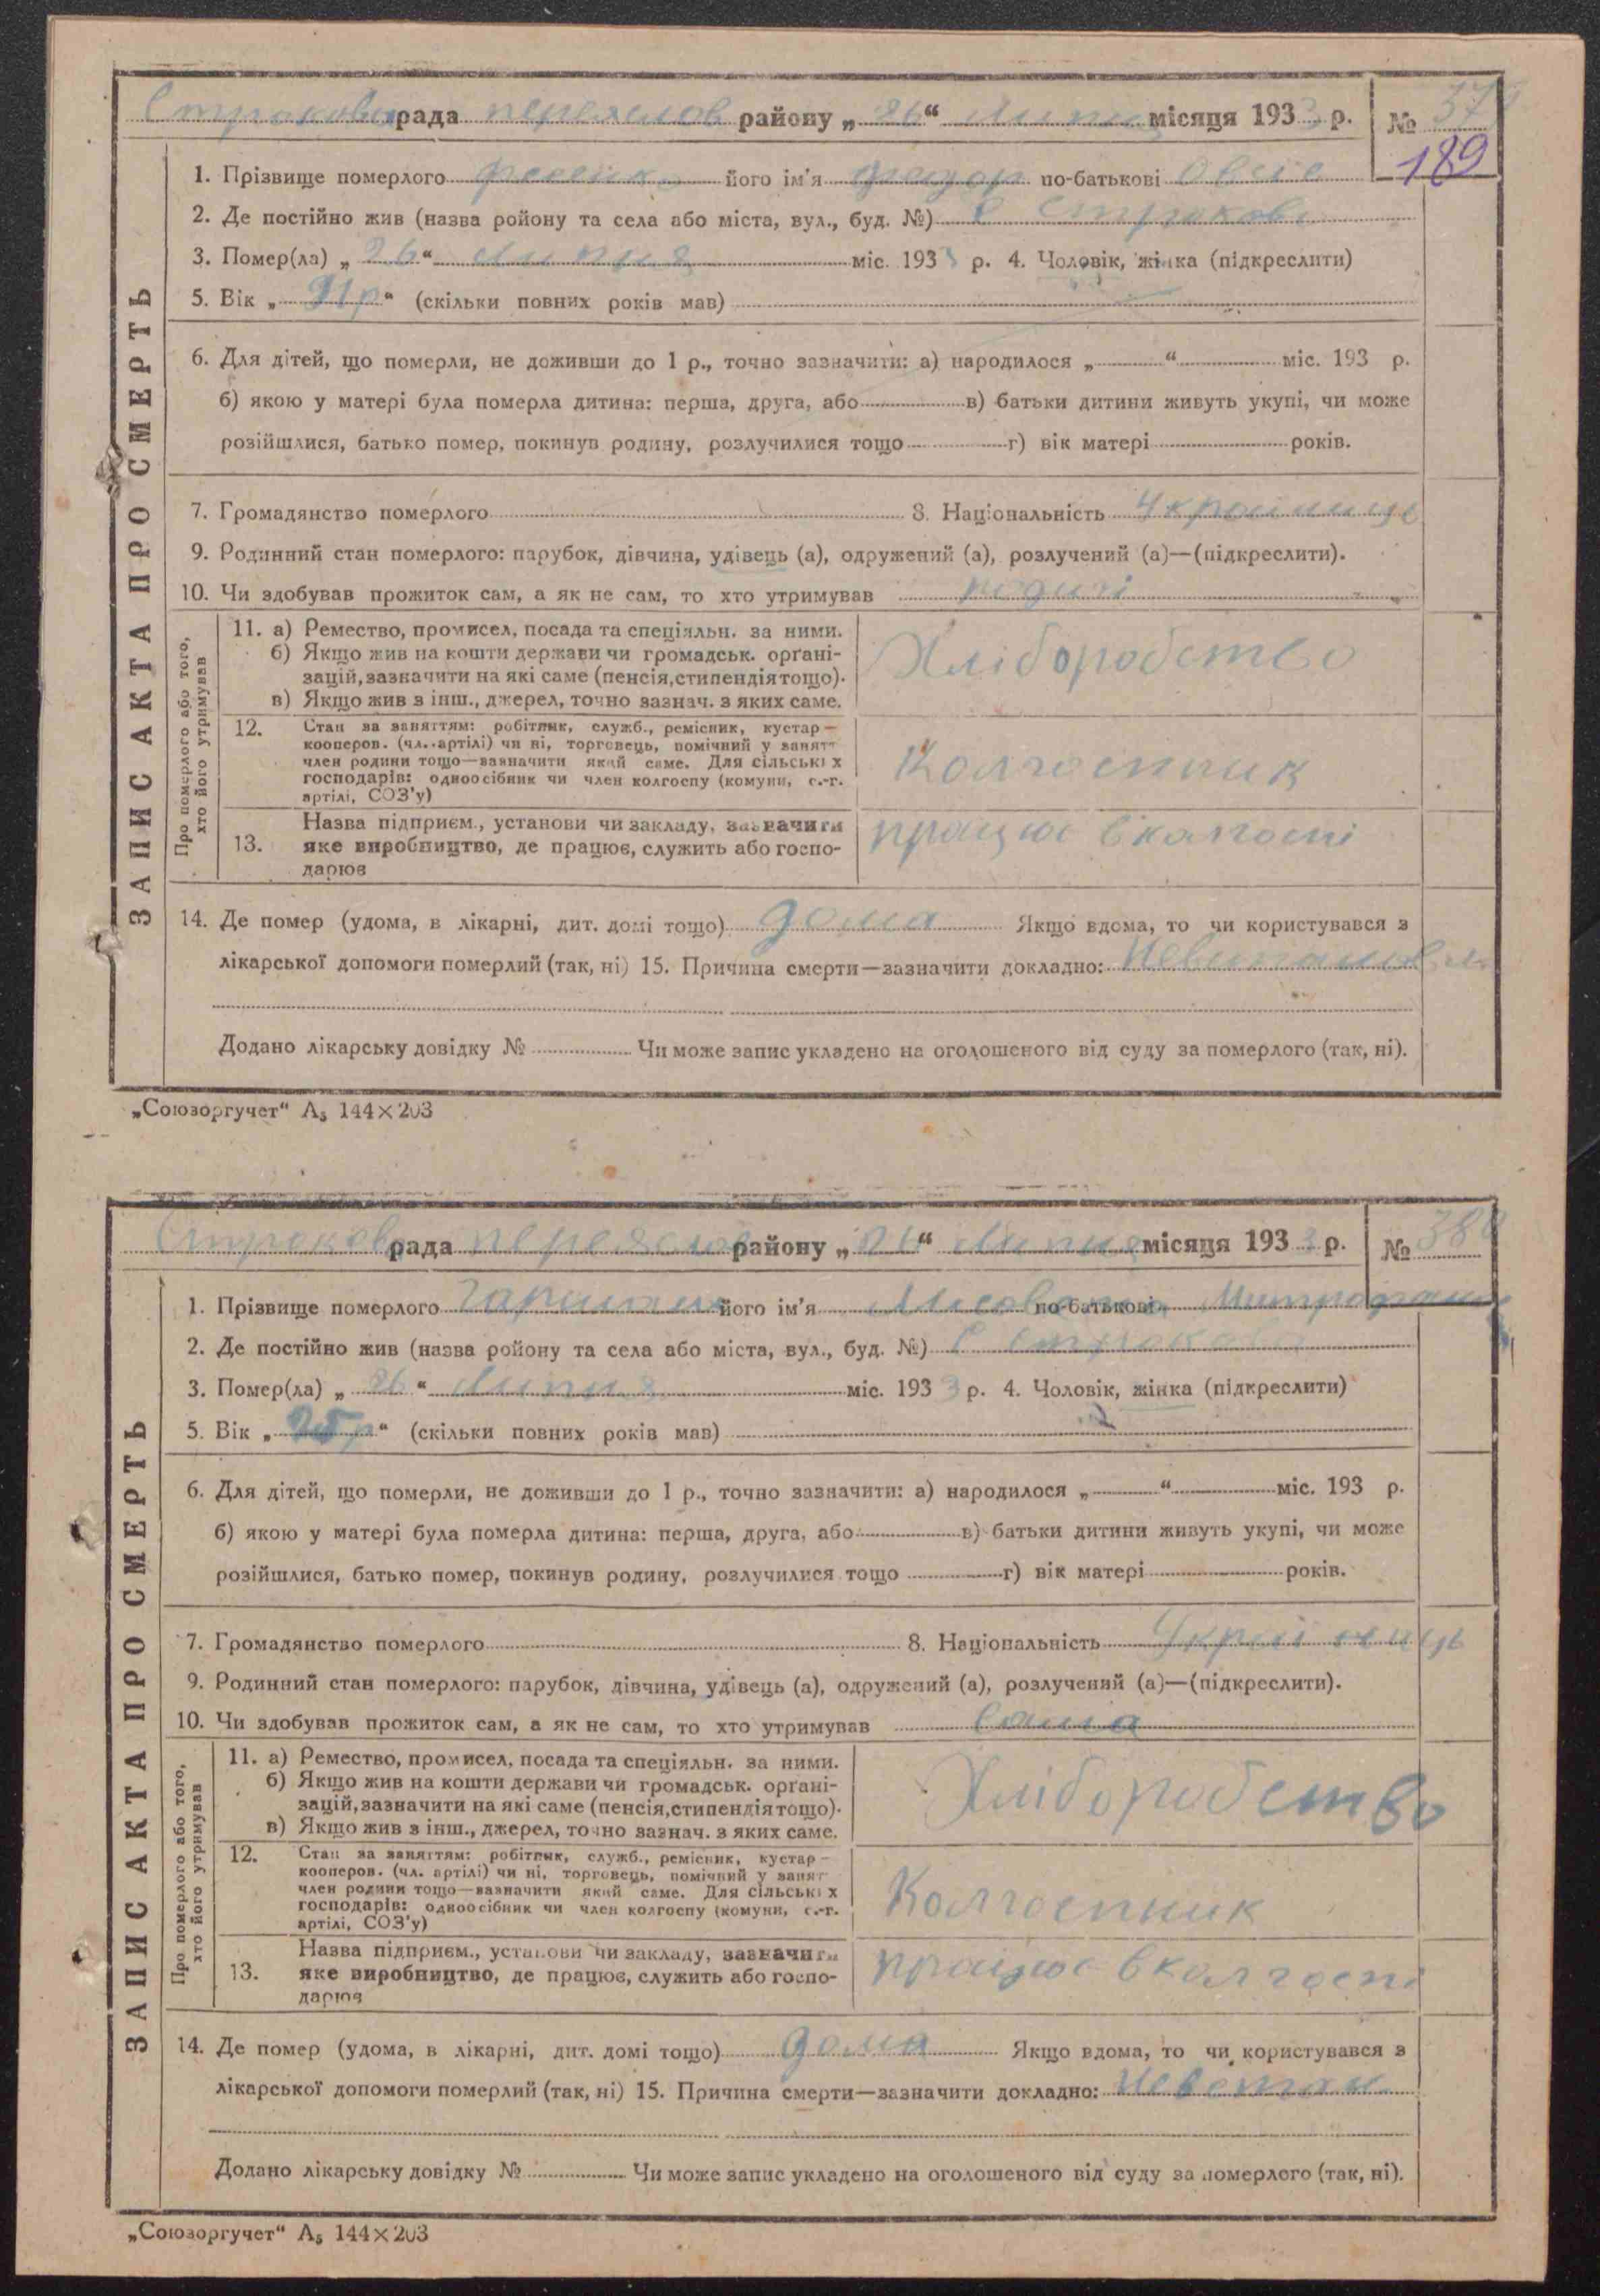 Строкова рада переяслов району „26“ Липня місяця 1933 р. № 379
189
1. Прізвище померлого фесенко його ім'я федор по-батькові Овсіє
2. Де постійно жив (назва ройону та села або міста, вул., буд. №) с Строкова
3. Помер(ла) „26“ Липня міс. 1933 р. 4. Чоловік, жінка (підкреслити)
5. Вік „ р“ (скільки повних років мав)
6. Для дітей, що померли, не доживши до 1 р., точно зазначити: а) народилося „ “ міс. 193 р.
б) якою у матері була померла дитина: перша, друга, або в) батьки дитини живуть укупі, чи може
розійшлися, батько помер, покинув родину, розлучилися тощо г) вік матері років.
7. Громадянство померлого 8. Національність Українець
9. Родинний стан померлого: парубок, дівчина, удівець (а), одружений (а), розлучений (а)—(підкреслити).
10. Чи здобував прожиток сам, а як не сам, то хто утримував родичі
ЗАПИС АКТА ПРО СМЕРТЬ
Про померлого або того,
хто його утримував
11. а) Ремество, промисел, посада та спеціяльн. за ними.
б) Якщо жив на кошти держави чи громадськ. орґані-
зацій, зазначити на які саме (пенсія, стипендія тощо).
в) Якщо жив з інш., джерел, точно зазнач. з яких саме.
Хліборобство
12. Стан за заняттям: робітник, служб., ремісник, кустар—
кооперов. (чл. артілі) чи ні, торговець, помічний у занятт
член родини тощо—зазначити який саме. Для сільських
господарів: одноосібник чи член колгоспу (комуни, с.-г.
артілі, СОЗ'у)
Колгоспник
13. Назва підприєм., установи чи закладу, зазначити
яке виробництво, де працює, служить або госпо-
дарює
працює в колгоспі
14. Де помер (удома, в лікарні, дит. домі тощо) дома Якщо вдома, то чи користувався з
лікарської допомоги померлий (так, ні) 15. Причина смерти—зазначити докладно:
Додано лікарську довідку № Чи може запис укладено на оголошеного від суду за померлого (так, ні).
„Союзоргучет“ А₅ 144×203
Строкова рада переяслов району „26“ Липня місяця 1933 р. № 380
1. Прізвище померлого його ім'я по-батькові Митрофан
2. Де постійно жив (назва ройону та села або міста, вул., буд. №) с Строкова
3. Помер(ла) „26“ Липня міс. 1933 р. 4. Чоловік, жінка (підкреслити)
5. Вік „25 р“ (скільки повних років мав)
6. Для дітей, що померли, не доживши до 1 р., точно зазначити: а) народилося „ “ міс. 193 р.
б) якою у матері була померла дитина: перша, друга, або в) батьки дитини живуть укупі, чи може
розійшлися, батько помер, покинув родину, розлучилися тощо г) вік матері років.
7. Громадянство померлого 8. Національність Українець
9. Родинний стан померлого: парубок, дівчина, удівець (а), одружений (а), розлучений (а)—(підкреслити).
10. Чи здобував прожиток сам, а як не сам, то хто утримував сама
ЗАПИС АКТА ПРО СМЕРТЬ
Про померлого або того,
хто його утримував
11. а) Ремество, промисел, посада та спеціяльн. за ними.
б) Якщо жив на кошти держави чи громадськ. орґані-
зацій, зазначити на які саме (пенсія, стипендія тощо).
в) Якщо жив з інш., джерел, точно зазнач. з яких саме.
Хліборобство
12. Стан за заняттям: робітник, служб., ремісник, кустар—
кооперов. (чл. артілі) чи ні, торговець, помічний у занят
член родини тощо—зазначити який саме. Для сільських
господарів: одноосібник чи член колгоспу (комуни, с.-г.
артілі, СОЗ'у)
Колгоспник
13. Назва підприєм., установи чи закладу, зазначити
яке виробництво, де працює, служить або госпо-
дарює
працює в колгоспі
14. Де помер (удома, в лікарні, дит. домі тощо) дома Якщо вдома, то чи користувався з
лікарської допомоги померлий (так, ні) 15. Причина смерти—зазначити докладно:
Додано лікарську довідку № Чи може запис укладено на оголошеного від суду за померлого (так, ні).
„Союзоргучет“ А₅ 144×203